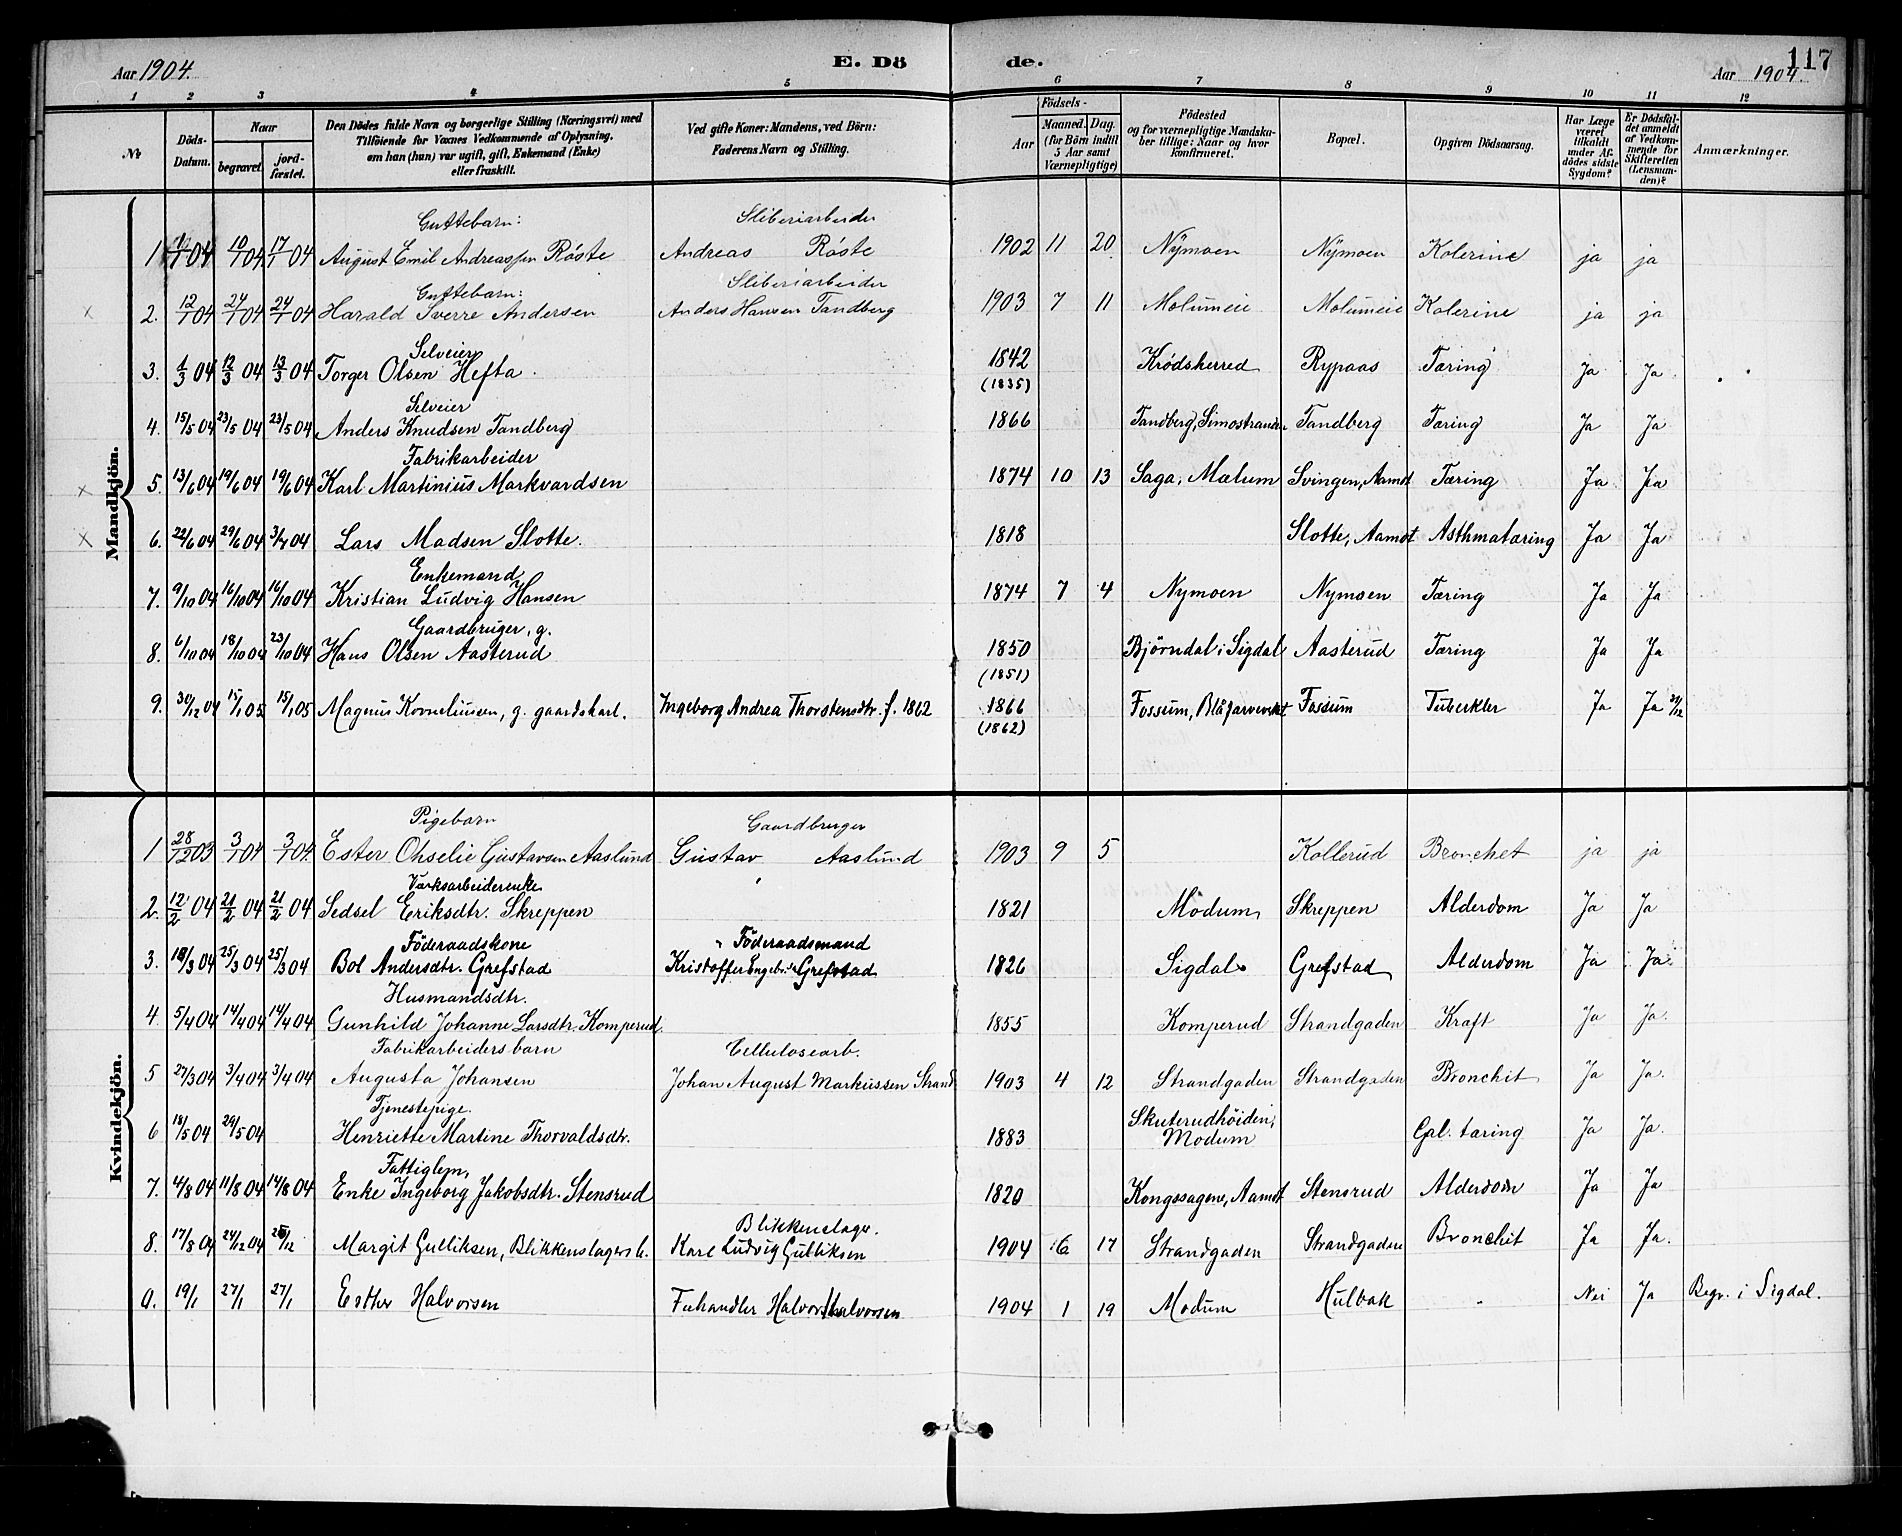 Aar 1904. E. Dö de. Aar 1904. 117
1 2 3 4 5 6 7 8 9 10 11 12
№ Döds-Datum. Naar begravet. jordfæstet. Den Dödes fulde Navn og borgerlige Stilling (Næringsvei) med Tilföiende for Voxnes Vedkommende af Oplysning, om han (hun) var ugift, gift, Enkemand (Enke) eller fraskilt. Ved gifte Koner: Mandens, ved Börn: Faderens Navn og Stilling. Födsels- Aar Maaned. Dag. (for Börn indtil 5 Aar samt Værnepligtige) Födested og for værnepligtige Mandskaber tillige: Naar og hvor konfirmeret. Bopæl. Opgiven Dödsaarsag. Har Læge været tilkaldt under Afdödes sidste Sygdom? Er Dödsfaldet anmeldt af Vedkommende for Skifteretten (Lensmanden)? Anmærkninger.
Mandkjön.
Guttebarn: Sliberiarbeider
1 04 10/1 04 17/1 04 August Emil Andreassen Röste Andreas Röste 1902 11 20 Nymoen Nymoen Kolerine ja ja
Guttebarn: Sliberiarbeider
2. 12/1 04 24/1 04 24/1 04 Harald Sverre Andersen Anders Hansen Tandberg 1903 7 11 Molumeie Molumeie Kolerine ja ja
Selveier
3. 1/3 04 12/3 04 13/3 04 Torger Olsen Hefta. 1842 (1835) Krødsherred Rypaas Tæring Ja Ja
Selveier
4. 15/5 04 23/5 04 23/5 04 Anders Knudsen Tandberg 1866 Tandberg, Simostranden Tandberg Tæring Ja Ja
Fabrikarbeider
5. 13/6 04 19/6 04 19/6 04 Karl Martinius Markvardsen 1874 10 13 Saga, Mælum Svingen, Aamot Tæring Ja Ja
6. 22/6 04 29/6 04 3/7 04 Lars Madsen Slotte. 1818 Slotte, Aamot Asthmatæring Ja Ja
Enkemand
7. 9/10 04 16/10 04 16/10 04 Kristian Ludvig Hansen 1874 7 4 Nymoen Nymoen Tæring Ja Ja
Gaardbruger, g.
8. 6/10 04 18/10 04 23/10 04 Hans Olsen Aasterud 1850 (1851) Bjørndal i Sigdal Aasterud Tæring Ja Ja
9. 30/12 04 15/1 05 15/1 05 Magnus Korneliussen, g. gaardskarl. Ingeborg Andrea Thorstensdtr. f. 1862 1866 (1862) Fossum, Blåfarveverket Fossum Tuberkler Ja Ja 31/12
Kvindekjön.
Pigebarn Gaardbruger
1 28/12 03 3/1 04 3/1 04. Ester Gustavsen Aaslund Gustav Aaslund 1903 9 5 Kollerud Bronchet ja ja
Værksarbeiderenke
2. 12/2 04 21/2 04 21/2 04 Sedsel Eriksdtr. Skreppen 1821 Modum Skreppen Alderdom Ja Ja
Föderaadskone Föderaadsmand
3. 18/3 04 25/3 04 25/3 04 Bol Andersdtr. Grefstad Kristoffer Grefstad 1826 Sigdal Grefstad Alderdom Ja Ja
Husmandsdtr.
4. 5/4 04 14/4 04 14/4 04 Gunhild Johanne Larsdtr. Komperud 1855 Komperud Strandgaden Kræft Ja Ja.
Fabrikarbeiders barn Cellulosearb.
5 27/3 04 3/4 04 3/4 04 Augusta Johansen Johan August Markussen Strand 1903 4 12 Strandgaden Strandgaden Bronchit Ja Ja.
Tjenestepige.
6 18/5 04 29/5 04 Henriette Martine Thorvaldsdtr. 1883 Skuterudhöiden, Modum Gal. tæring Ja Ja.
Fattiglem,
7. 4/8 04 11/8 04 14/8 04 Enke Ingeborg Jakobsdtr. Stensrud 1820 Kongssagene, Aamot Stensrud Alderdom Ja Ja
Blikkenslager.
8. 17/8 04 24/12 04 /12 Margit Gulliksen, Blikkenslagers b. Karl Ludvig Gulliksen 1904 6 17 Strandgaden Strandgaden Bronchit Ja Ja.
9. 19/1 27/1 27/1 Esther Halvorsen Fehandler Halvor Halvorsen 1904 1 19 Modum Hulbak Nei Ja Begr. i Sigdal.